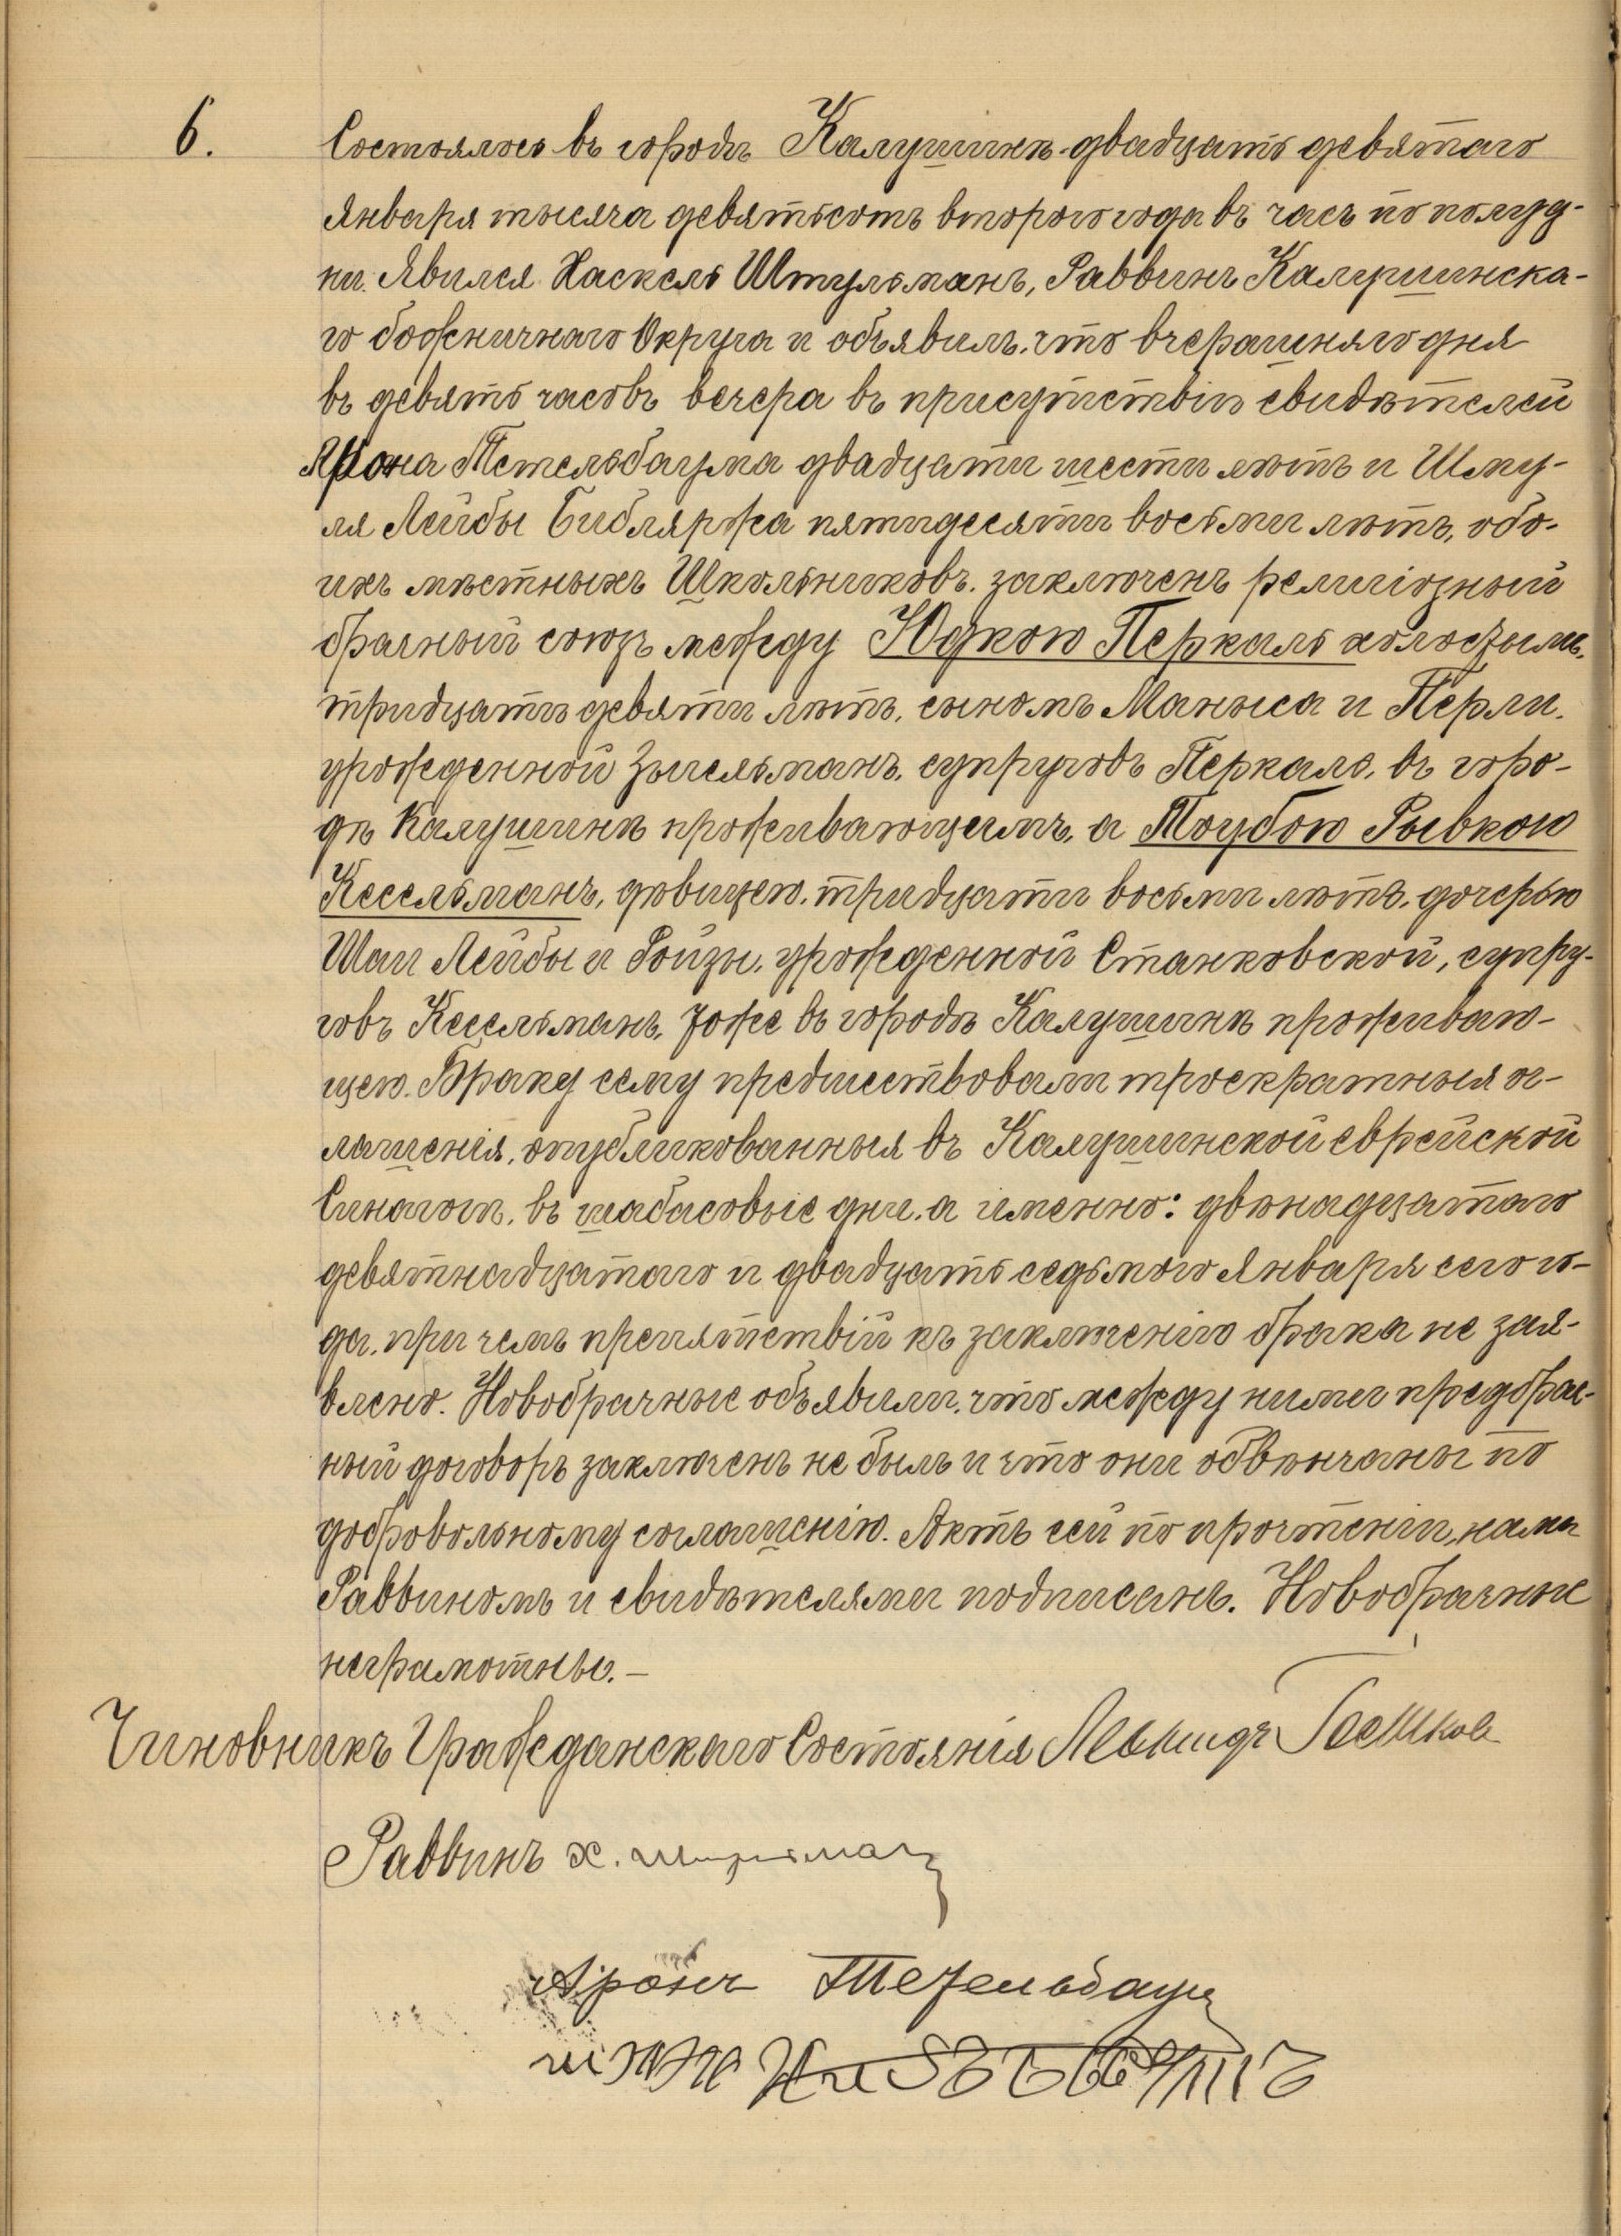 6.
Состоялось въ городѣ Калушинѣ двадцать девятаго
Января тысяча девятьсотъ второго года въ часъ по полуд-
ни. Явился Хаскель Штульманъ, Раввинъ Калушинска-
го божничнаго Округа и объявилъ, что вчерашняго дня
въ девять часовъ вечера въ присутствіи свидѣтелей
Арона Тетельбаума двадцати шести лѣтъ и Шму-
ля Лейбы Библяржа пятидесяти восьми лѣтъ, обо-
ихъ мѣстныхъ Школьниковъ, заключенъ религіозный
брачный союзъ между Юдкою Перкаль холостымъ,
тридцати девяти лѣтъ, сыномъ Маныса и Перли,
урожденной Зысельманъ, супруговъ Перкаль, въ горо-
дѣ Калушинѣ проживающимъ, а Тоубою Рывкою
Кесельманъ, дѣвицею, тридцати восьми лѣтъ, дочерью
Шаи Лейбы и Ройзы, урожденной Станковской, супру-
говъ Кесельманъ, тоже въ городѣ Калушинѣ проживаю-
щею. Браку сему предшествовали троекратныя ог-
лашенія, опубликованныя въ Калушинской еврейской
Синагогѣ, въ шабасовые дни, а именно: двѣнадцатаго
девятнадцатаго и двадцать седьмого Января сего го-
да, при чемъ препятствій къ заключенію брака не зая-
влено. Новобрачные объявили, что между ними предбрач-
ный договоръ заключенъ не былъ и что они обвѣнчаны по
добровольному соглашенію. Актъ сей по прочтеніи, нами
Раввиномъ и свидѣтелями подписанъ. Новобрачные
неграмотны.–
Чиновникъ Гражданскаго Состоянія
Раввинъ Х. Штульманъ
Аронъ Тетельбаум